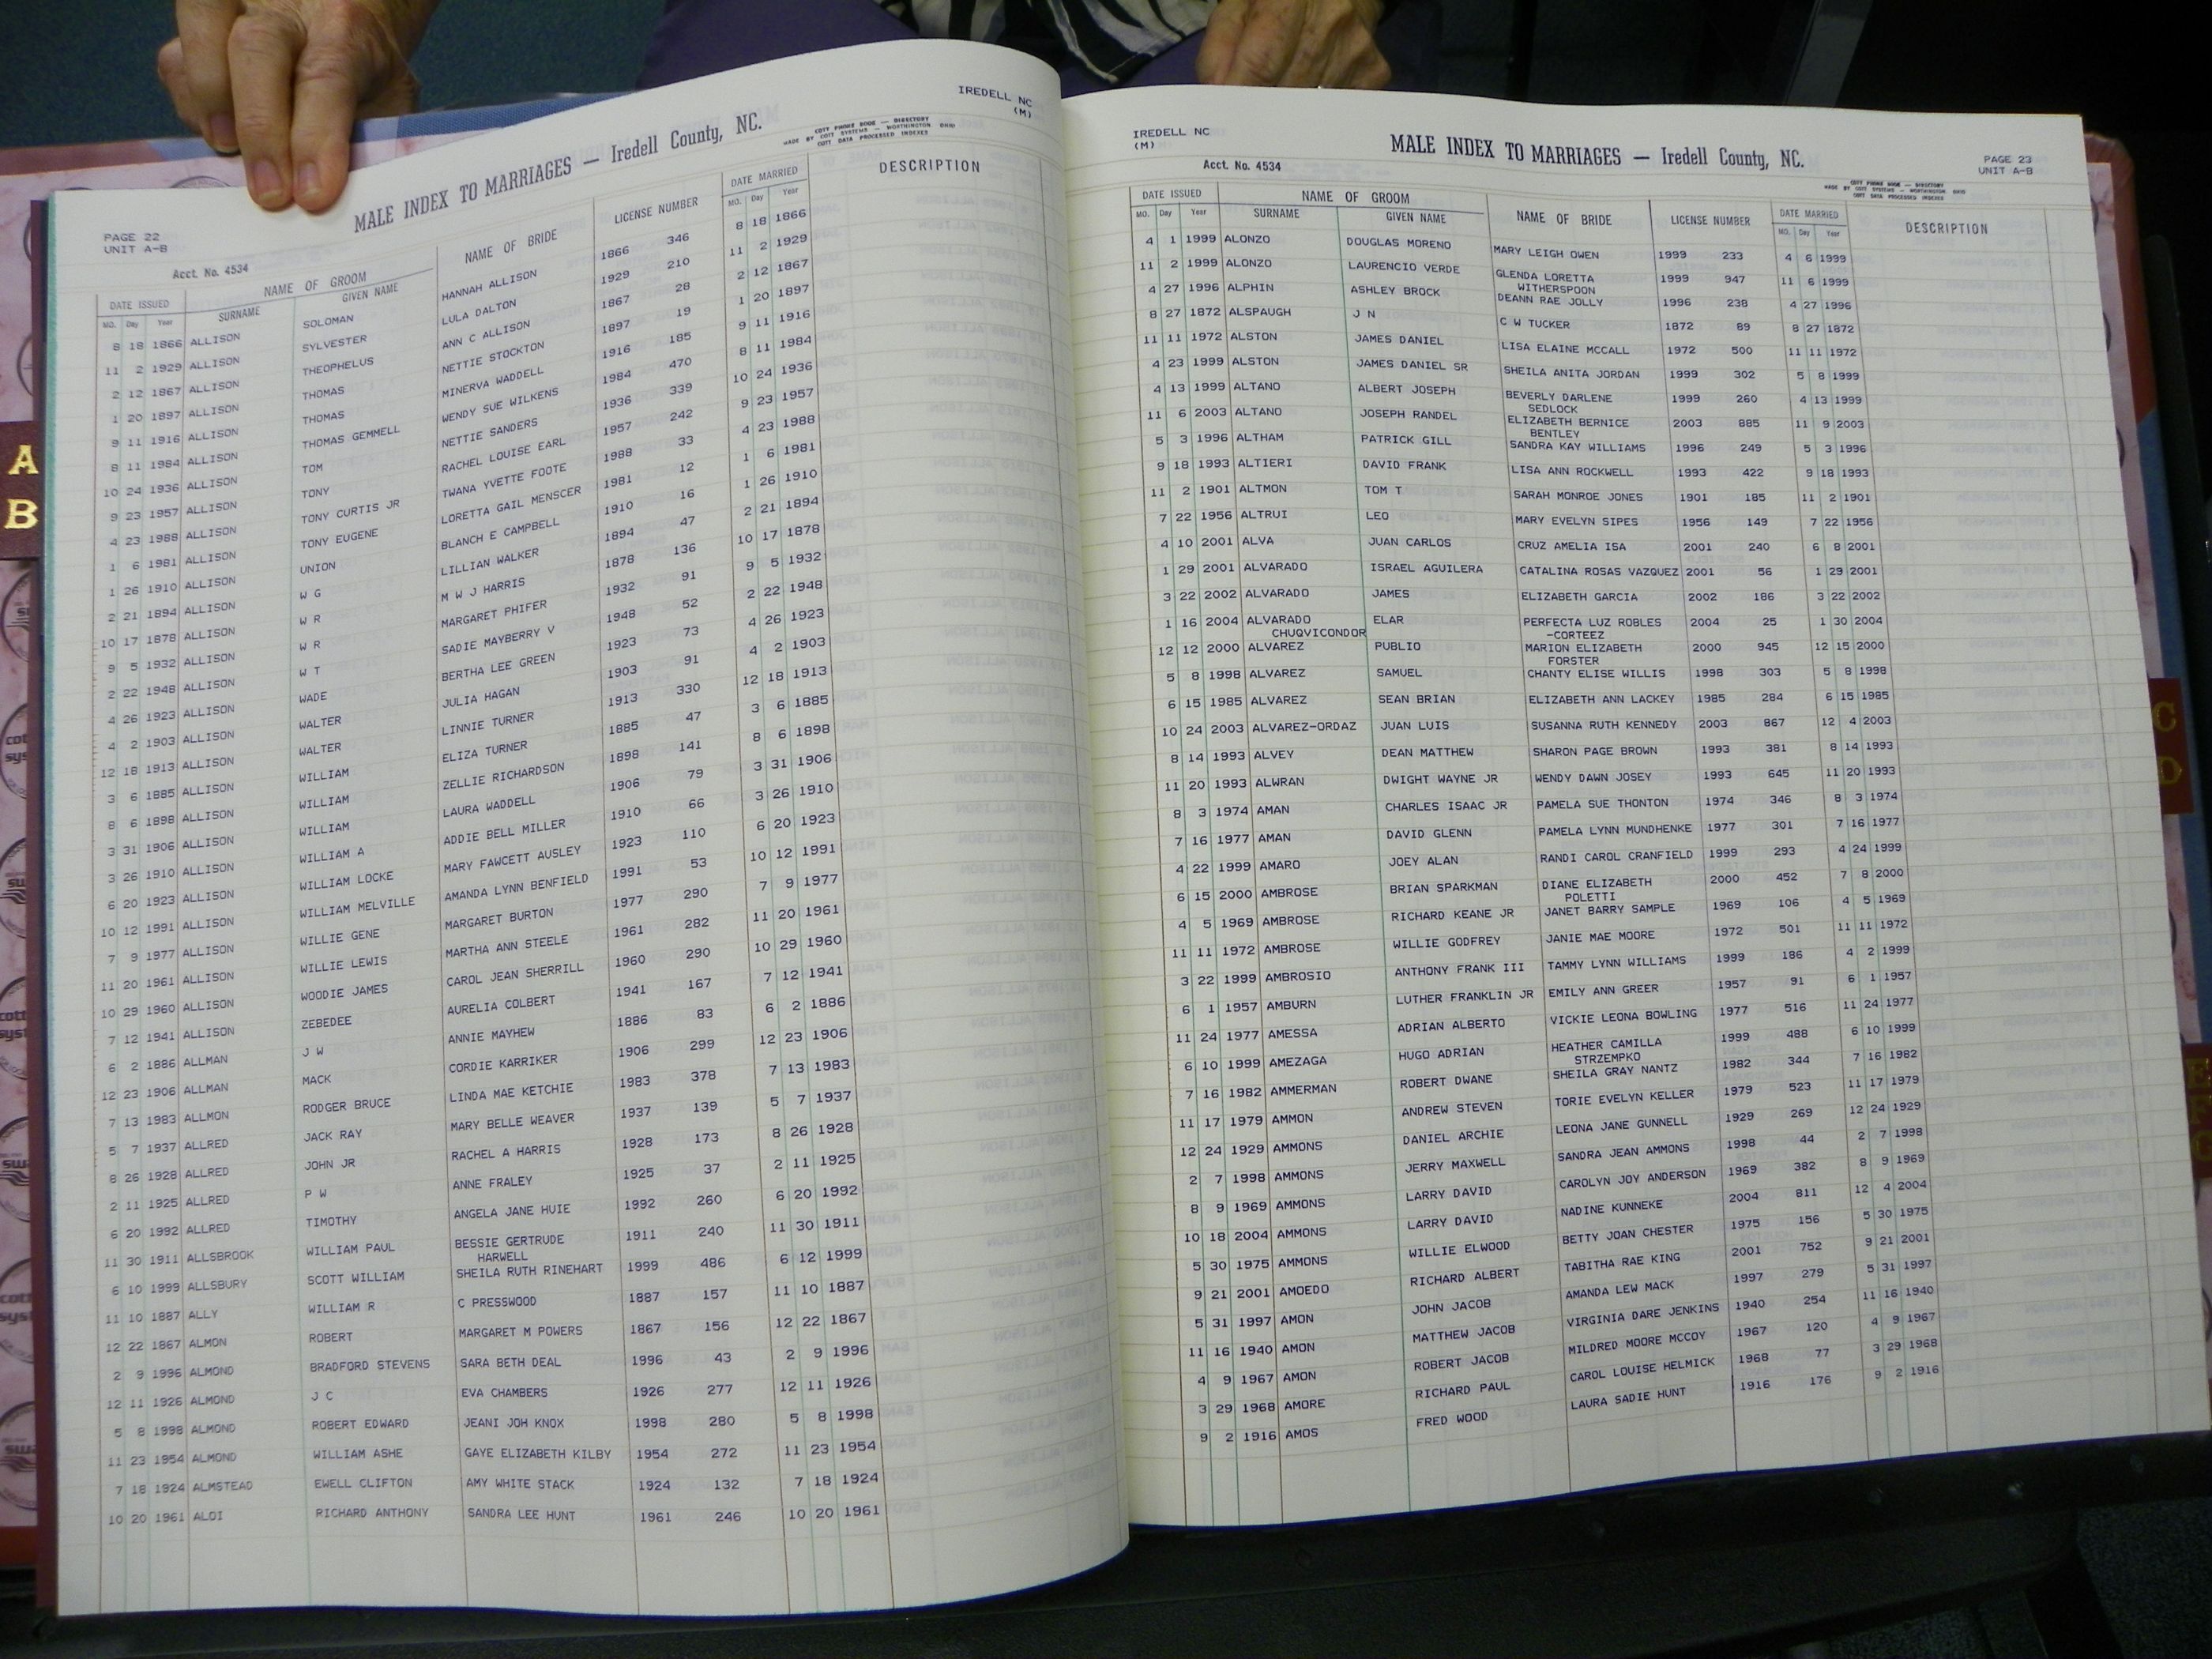 IREDELL NC
(M)
MALE INDEX TO MARRIAGES — Iredell County, NC.
COTT PHONE BOOK — DIRECTORY
MADE BY COTT SYSTEMS — WORTHINGTON OHIO
COTT DATA PROCESSED INDEXES
PAGE 22
UNIT A-B
Acct. No. 4534
DATE ISSUED NAME OF GROOM NAME OF BRIDE LICENSE NUMBER DATE MARRIED DESCRIPTION
MO. Day Year SURNAME GIVEN NAME MO. Day Year
8 18 1866 ALLISON SOLOMAN HANNAH ALLISON 1866 346 8 18 1866
11 2 1929 ALLISON SYLVESTER LULA DALTON 1929 210 11 2 1929
2 12 1867 ALLISON THEOPHELUS ANN C ALLISON 1867 28 2 12 1867
1 20 1897 ALLISON THOMAS NETTIE STOCKTON 1897 19 1 20 1897
9 11 1916 ALLISON THOMAS MINERVA WADDELL 1916 185 9 11 1916
8 11 1984 ALLISON THOMAS GEMMELL WENDY SUE WILKENS 1984 470 8 11 1984
10 24 1936 ALLISON TOM NETTIE SANDERS 1936 339 10 24 1936
9 23 1957 ALLISON TONY RACHEL LOUISE EARL 1957 242 9 23 1957
4 23 1988 ALLISON TONY CURTIS JR TWANA YVETTE FOOTE 1988 33 4 23 1988
1 6 1981 ALLISON TONY EUGENE LORETTA GAIL MENSCER 1981 12 1 6 1981
1 26 1910 ALLISON UNION BLANCH E CAMPBELL 1910 16 1 26 1910
2 21 1894 ALLISON W G LILLIAN WALKER 1894 47 2 21 1894
10 17 1878 ALLISON W R M W J HARRIS 1878 136 10 17 1878
9 5 1932 ALLISON W R MARGARET PHIFER 1932 91 9 5 1932
2 22 1948 ALLISON W T SADIE MAYBERRY V 1948 52 2 22 1948
4 26 1923 ALLISON WADE BERTHA LEE GREEN 1923 73 4 26 1923
4 2 1903 ALLISON WALTER JULIA HAGAN 1903 91 4 2 1903
12 18 1913 ALLISON WALTER LINNIE TURNER 1913 330 12 18 1913
3 6 1885 ALLISON WILLIAM ELIZA TURNER 1885 47 3 6 1885
8 6 1898 ALLISON WILLIAM ZELLIE RICHARDSON 1898 141 8 6 1898
3 31 1906 ALLISON WILLIAM LAURA WADDELL 1906 79 3 31 1906
3 26 1910 ALLISON WILLIAM A ADDIE BELL MILLER 1910 66 3 26 1910
6 20 1923 ALLISON WILLIAM LOCKE MARY FAWCETT AUSLEY 1923 110 6 20 1923
10 12 1991 ALLISON WILLIAM MELVILLE AMANDA LYNN BENFIELD 1991 53 10 12 1991
7 9 1977 ALLISON WILLIE GENE MARGARET BURTON 1977 290 7 9 1977
11 20 1961 ALLISON WILLIE LEWIS MARTHA ANN STEELE 1961 282 11 20 1961
10 29 1960 ALLISON WOODIE JAMES CAROL JEAN SHERRILL 1960 290 10 29 1960
7 12 1941 ALLISON ZEBEDEE AURELIA COLBERT 1941 167 7 12 1941
6 2 1886 ALLMAN J W ANNIE MAYHEW 1886 83 6 2 1886
12 23 1906 ALLMAN MACK CORDIE KARRIKER 1906 299 12 23 1906
7 13 1983 ALLMON RODGER BRUCE LINDA MAE KETCHIE 1983 378 7 13 1983
5 7 1937 ALLRED JACK RAY MARY BELLE WEAVER 1937 139 5 7 1937
8 26 1928 ALLRED JOHN JR RACHEL A HARRIS 1928 173 8 26 1928
2 11 1925 ALLRED P W ANNE FRALEY 1925 37 2 11 1925
6 20 1992 ALLRED TIMOTHY ANGELA JANE HUIE 1992 260 6 20 1992
11 30 1911 ALLSBROOK WILLIAM PAUL BESSIE GERTRUDE 1911 240 11 30 1911
HARWELL
6 10 1999 ALLSBURY SCOTT WILLIAM SHEILA RUTH RINEHART 1999 486 6 12 1999
11 10 1887 ALLY WILLIAM R C PRESSWOOD 1887 157 11 10 1887
12 22 1867 ALMON ROBERT MARGARET M POWERS 1867 156 12 22 1867
2 9 1996 ALMOND BRADFORD STEVENS SARA BETH DEAL 1996 43 2 9 1996
12 11 1926 ALMOND J C EVA CHAMBERS 1926 277 12 11 1926
5 8 1998 ALMOND ROBERT EDWARD JEANI JOH KNOX 1998 280 5 8 1998
11 23 1954 ALMOND WILLIAM ASHE GAYE ELIZABETH KILBY 1954 272 11 23 1954
7 18 1924 ALMSTEAD EWELL CLIFTON AMY WHITE STACK 1924 132 7 18 1924
10 20 1961 ALOI RICHARD ANTHONY SANDRA LEE HUNT 1961 246 10 20 1961
IREDELL NC
(M)
Acct. No. 4534
MALE INDEX TO MARRIAGES — Iredell County, NC.
PAGE 23
UNIT A-B
COTT PHONE BOOK — DIRECTORY
MADE BY COTT SYSTEMS — WORTHINGTON OHIO
COTT DATA PROCESSED INDEXES
DATE ISSUED NAME OF GROOM NAME OF BRIDE LICENSE NUMBER DATE MARRIED DESCRIPTION
MO. Day Year SURNAME GIVEN NAME MO. Day Year
4 1 1999 ALONZO DOUGLAS MORENO MARY LEIGH OWEN 1999 233 4 6 1999
11 2 1999 ALONZO LAURENCIO VERDE GLENDA LORETTA 1999 947 11 6 1999
WITHERSPOON
4 27 1996 ALPHIN ASHLEY BROCK DEANN RAE JOLLY 1996 238 4 27 1996
8 27 1872 ALSPAUGH J N C W TUCKER 1872 89 8 27 1872
11 11 1972 ALSTON JAMES DANIEL LISA ELAINE MCCALL 1972 500 11 11 1972
4 23 1999 ALSTON JAMES DANIEL SR SHEILA ANITA JORDAN 1999 302 5 8 1999
4 13 1999 ALTANO ALBERT JOSEPH BEVERLY DARLENE 1999 260 4 13 1999
SEDLOCK
11 6 2003 ALTANO JOSEPH RANDEL ELIZABETH BERNICE 2003 885 11 9 2003
BENTLEY
5 3 1996 ALTHAM PATRICK GILL SANDRA KAY WILLIAMS 1996 249 5 3 1996
9 18 1993 ALTIERI DAVID FRANK LISA ANN ROCKWELL 1993 422 9 18 1993
11 2 1901 ALTMON TOM T SARAH MONROE JONES 1901 185 11 2 1901
7 22 1956 ALTRUI LEO MARY EVELYN SIPES 1956 149 7 22 1956
4 10 2001 ALVA JUAN CARLOS CRUZ AMELIA ISA 2001 240 6 8 2001
1 29 2001 ALVARADO ISRAEL AGUILERA CATALINA ROSAS VAZQUEZ 2001 56 1 29 2001
3 22 2002 ALVARADO JAMES ELIZABETH GARCIA 2002 186 3 22 2002
1 16 2004 ALVARADO ELAR PERFECTA LUZ ROBLES 2004 25 1 30 2004
CHUQVICONDOR -CORTEEZ
12 12 2000 ALVAREZ PUBLIO MARION ELIZABETH 2000 945 12 15 2000
FORSTER
5 8 1998 ALVAREZ SAMUEL CHANTY ELISE WILLIS 1998 303 5 8 1998
6 15 1985 ALVAREZ SEAN BRIAN ELIZABETH ANN LACKEY 1985 284 6 15 1985
10 24 2003 ALVAREZ-ORDAZ JUAN LUIS SUSANNA RUTH KENNEDY 2003 867 12 4 2003
8 14 1993 ALVEY DEAN MATTHEW SHARON PAGE BROWN 1993 381 8 14 1993
11 20 1993 ALWRAN DWIGHT WAYNE JR WENDY DAWN JOSEY 1993 645 11 20 1993
8 3 1974 AMAN CHARLES ISAAC JR PAMELA SUE THONTON 1974 346 8 3 1974
7 16 1977 AMAN DAVID GLENN PAMELA LYNN MUNDHENKE 1977 301 7 16 1977
4 22 1999 AMARO JOEY ALAN RANDI CAROL CRANFIELD 1999 293 4 24 1999
6 15 2000 AMBROSE BRIAN SPARKMAN DIANE ELIZABETH 2000 452 7 8 2000
POLETTI
4 5 1969 AMBROSE RICHARD KEANE JR JANET BARRY SAMPLE 1969 106 4 5 1969
11 11 1972 AMBROSE WILLIE GODFREY JANIE MAE MOORE 1972 501 11 11 1972
3 22 1999 AMBROSIO ANTHONY FRANK III TAMMY LYNN WILLIAMS 1999 186 4 2 1999
6 1 1957 AMBURN LUTHER FRANKLIN JR EMILY ANN GREER 1957 91 6 1 1957
11 24 1977 AMESSA ADRIAN ALBERTO VICKIE LEONA BOWLING 1977 516 11 24 1977
6 10 1999 AMEZAGA HUGO ADRIAN HEATHER CAMILLA 1999 488 6 10 1999
STRZEMPKO
7 16 1982 AMMERMAN ROBERT DWANE SHEILA GRAY NANTZ 1982 344 7 16 1982
11 17 1979 AMMON ANDREW STEVEN TORIE EVELYN KELLER 1979 523 11 17 1979
12 24 1929 AMMONS DANIEL ARCHIE LEONA JANE GUNNELL 1929 269 12 24 1929
2 7 1998 AMMONS JERRY MAXWELL SANDRA JEAN AMMONS 1998 44 2 7 1998
8 9 1969 AMMONS LARRY DAVID CAROLYN JOY ANDERSON 1969 382 8 9 1969
10 18 2004 AMMONS LARRY DAVID NADINE KUNNEKE 2004 811 12 4 2004
5 30 1975 AMMONS WILLIE ELWOOD BETTY JOAN CHESTER 1975 156 5 30 1975
9 21 2001 AMOEDO RICHARD ALBERT TABITHA RAE KING 2001 752 9 21 2001
5 31 1997 AMON JOHN JACOB AMANDA LEW MACK 1997 279 5 31 1997
11 16 1940 AMON MATTHEW JACOB VIRGINIA DARE JENKINS 1940 254 11 16 1940
4 9 1967 AMON ROBERT JACOB MILDRED MOORE MCCOY 1967 120 4 9 1967
3 29 1968 AMORE RICHARD PAUL CAROL LOUISE HELMICK 1968 77 3 29 1968
9 2 1916 AMOS FRED WOOD LAURA SADIE HUNT 1916 176 9 2 1916
A
B
C
D